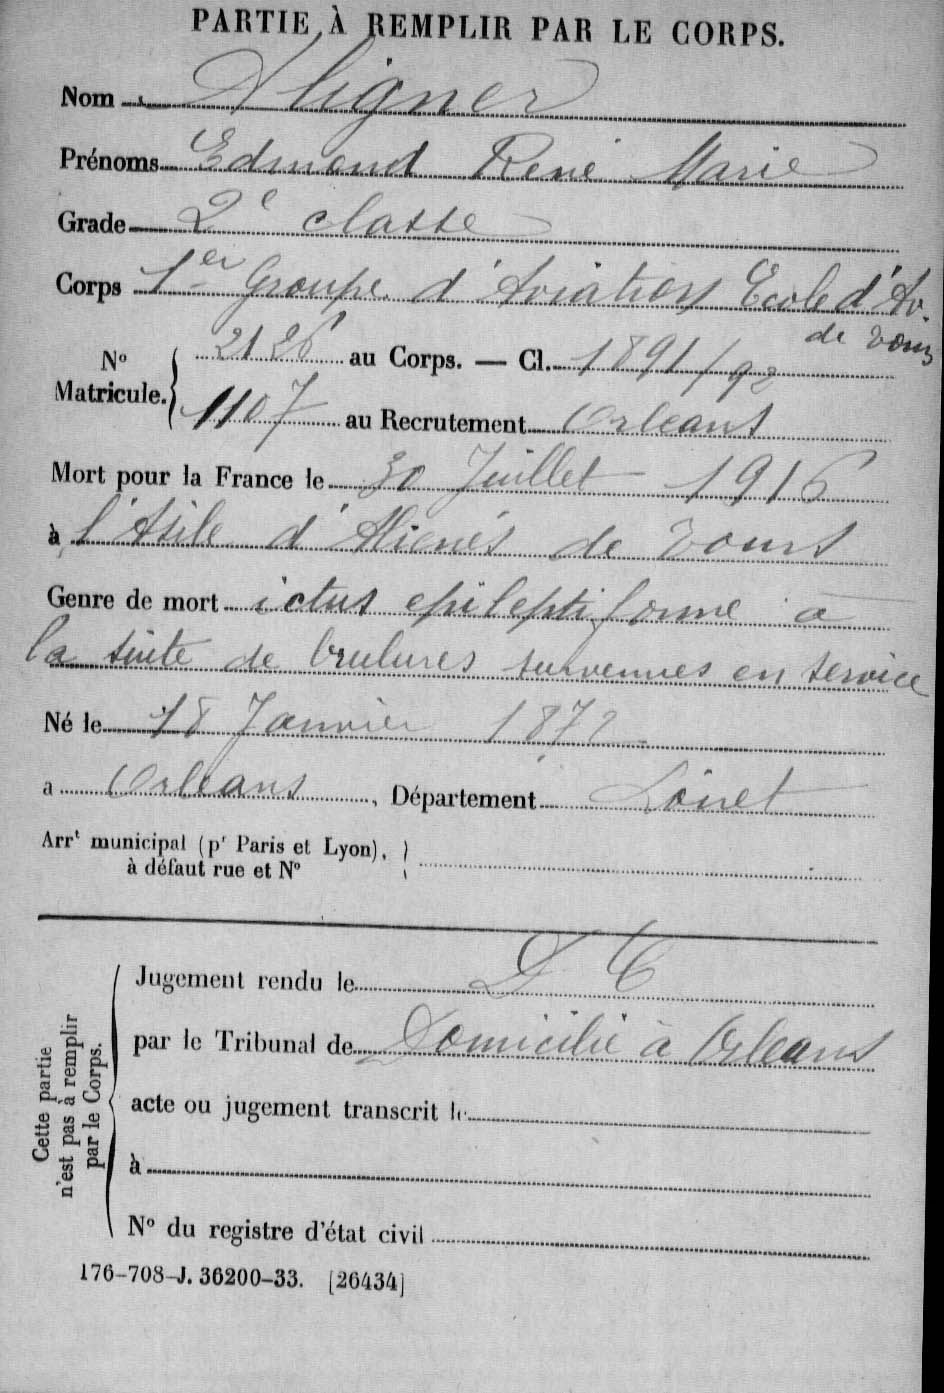 PARTIE À REMPLIR PAR LE CORPS.
Nom Aligner
Prénoms Edmond René Marie
Grade 2e classe
Corps 1er Groupe d'Aviation Ecole d'Av.
de Tours
No Matricule. 2126 au Corps. — Cl. 1891/92
1107 au Recrutement Orleans
Mort pour la France le 30 Juillet 1916
à l'Asile d'Aliénés de Tours
Genre de mort ictus epileptiforme a
la suite de brulures survenues en service
Né le 18 Janvier 1872
a Orleans, Département Loiret
Arrt municipal (pr Paris et Lyon),
à défaut rue et No
Cette partie n'est pas à remplir par le Corps.
Jugement rendu le
par le Tribunal de Domicilié à Orleans
acte ou jugement transcrit le
à
No du registre d'état civil
176-708-J. 36200-33. [26434]